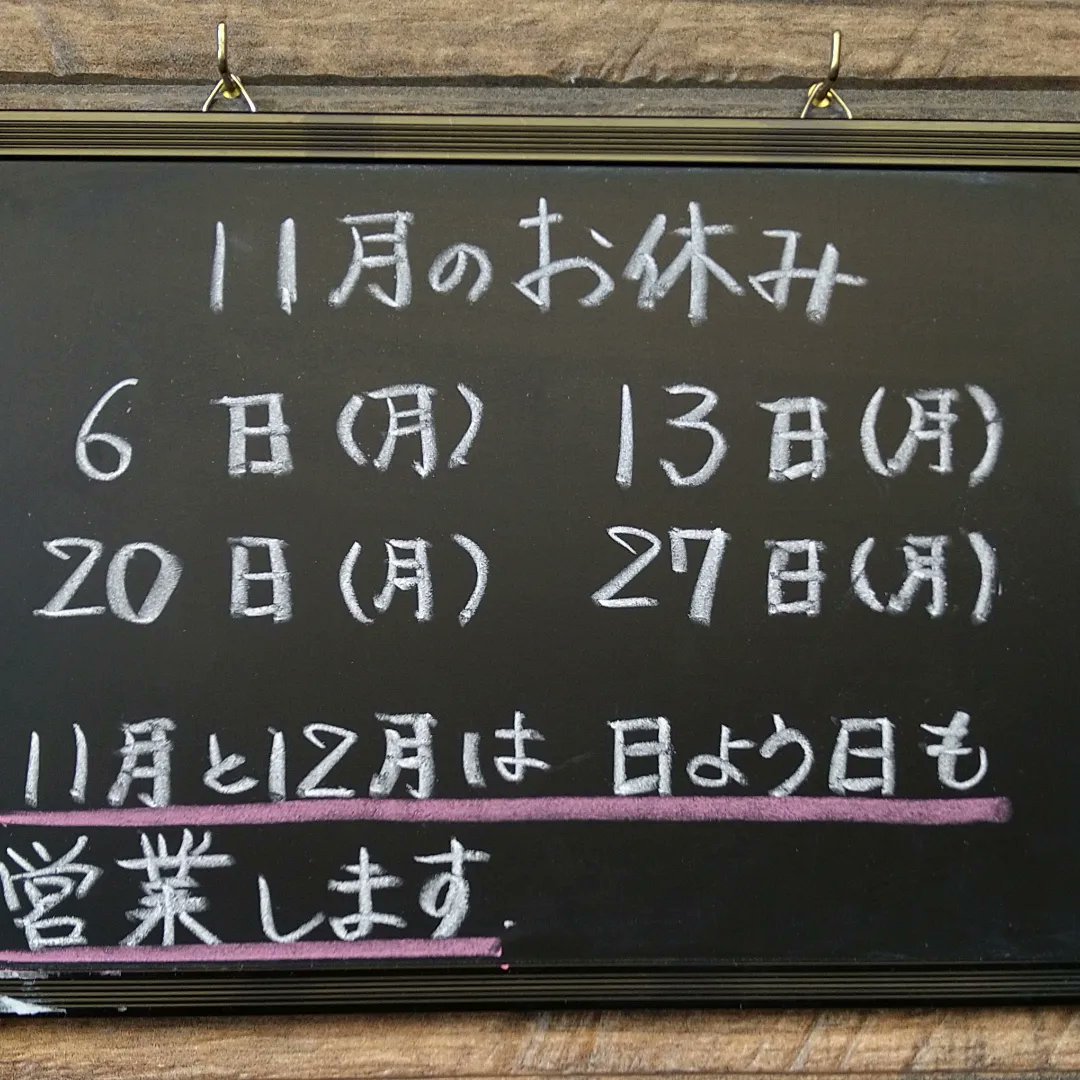 11月のお休み
6日(月) 13日(月)
20日(月) 27日(月)
11月と12月は日よう日も
営業します.